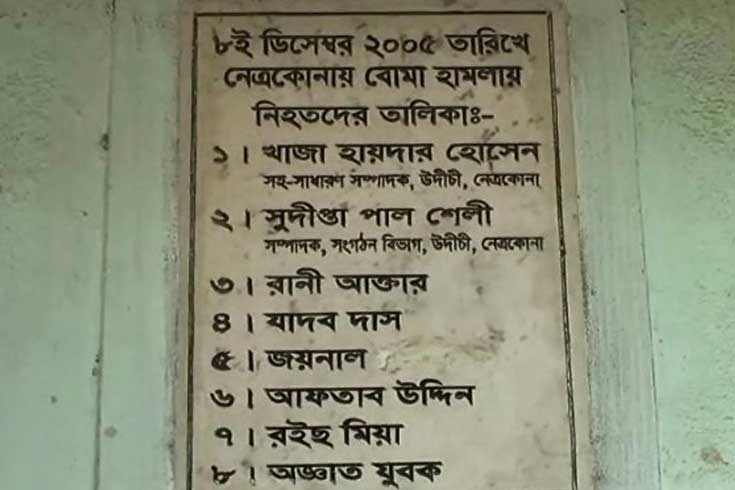 ৮ই ডিসেম্বর ২০০৫ তারিখে
নেত্রকোনায় বোমা হামলায়
নিহতদের তালিকাঃ-
১। খাজা হায়দার হোসেন
সহ-সাধারণ সম্পাদক, উদীচী, নেত্রকোনা
২। সুদীপ্তা পাল শেলী
সম্পাদক, সংগঠন বিভাগ, উদীচী, নেত্রকোনা
৩। রানী আক্তার
৪। যাদব দাস
৫। জয়নাল
৬। আফতাব উদ্দিন
৭। রইছ মিয়া
৮। অজ্ঞাত যুবক